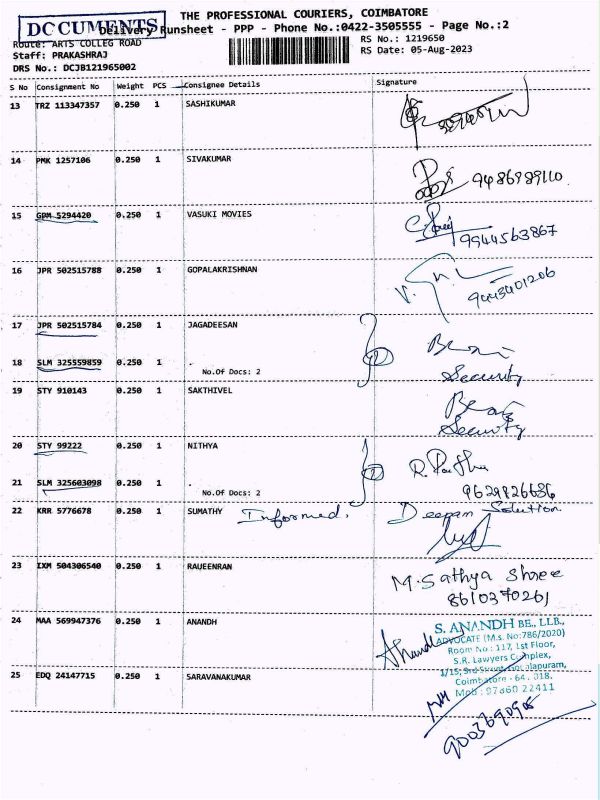 THE PROFESSIONAL COURIERS, COIMBATORE
DOCUMENTS
Delivery Runsheet - PPP - Phone No.:0422-3505555 - Page No.:2
Route: ARTS COLLEG ROAD
RS No.: 1219650
Staff: PRAKASHRAJ
RS Date: 05-Aug-2023
DRS No.: DCJB121965002
S No Consignment No Weight PCS Consignee Details Signature
13 TRZ 113347357 0.250 1 SASHIKUMAR
14 PMK 1257106 0.250 1 SIVAKUMAR
9486989110
15 GDM 5294420 0.250 1 VASUKI MOVIES
9944563867
16 JPR 502515788 0.250 1 GOPALAKRISHNAN
9443401206
17 JPR 502515784 0.250 1 JAGADEESAN
18 SLM 325559859 0.250 1 .
No.Of Docs: 2
Security
19 STY 910143 0.250 1 SAKTHIVEL
Security
20 STY 99222 0.250 1 NITHYA
21 SLM 325603098 0.250 1 .
No.Of Docs: 2
9629826636
22 KRR 5776678 0.250 1 SUMATHY Informed. Deepam Solution
23 IXM 504306540 0.250 1 RAUEENRAN
M. Sathya Shree
8610370261
24 MAA 569947376 0.250 1 ANANDH
Anandh
S. ANANDH BE., LLB.,
ADVOCATE (M.s. No:786/2020)
Room No : 117, 1st Floor,
S.R. Lawyers Complex,
1/15, 3rd Street, Gopalapuram,
Coimbatore - 641 018.
Mob : 97860 22411
25 EDQ 24147715 0.250 1 SARAVANAKUMAR
9003690908